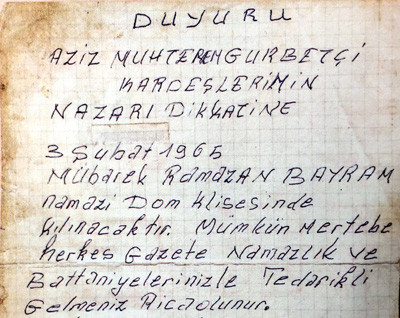 DUYURU
AZİZ MUHTEREM GURBETÇİ
KARDEŞLERİMİN
NAZARI DİKKATİNE
3 Şubat 1965
Mübarek RamazAN BAYRAM
namazı Dom Klisesinde
kılınacaktır. Mümkün mertebe
herkes Gazete Namazlık ve
Battaniyelerinizle Tedarikli
Gelmeniz Ricaolunur.